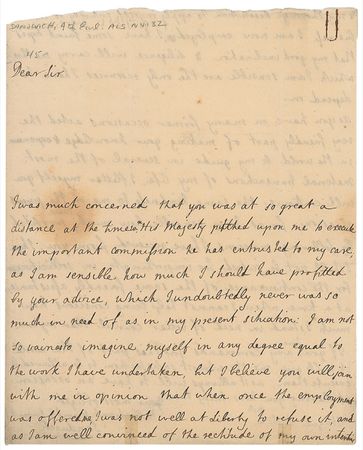 SANDWICH, 4th Earl. ALS N4132
45
Dear Sir
I was much concerned that you was at so great a
distance at the time his Majesty pitched upon me to execute
the important commission he has entrusted to my care,
as I am sensible how much I should have profitted
by your advice, which I undoubtedly never was so
much in need of as in my present situation: I am not
so vain as to imagine myself in any degree equal to
the work I have undertaken, but I believe you will join
with me in opinion that when once the employment
was offered me, I was not well at liberty to refuse it, and
as I am well convinced of the rectitude of my own